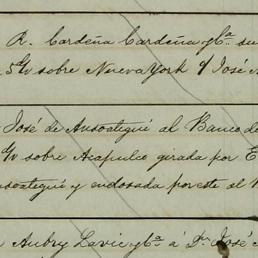 R. Cardeña Cardeña y Ca. su
5 Gr/ sobre Nueva York
José de Ansoategui al Banco de
Gr/ sobre Acapulco girada por E
nsoategui y endosada por este al B
Aubry Lavie y Ca. á Dn. José